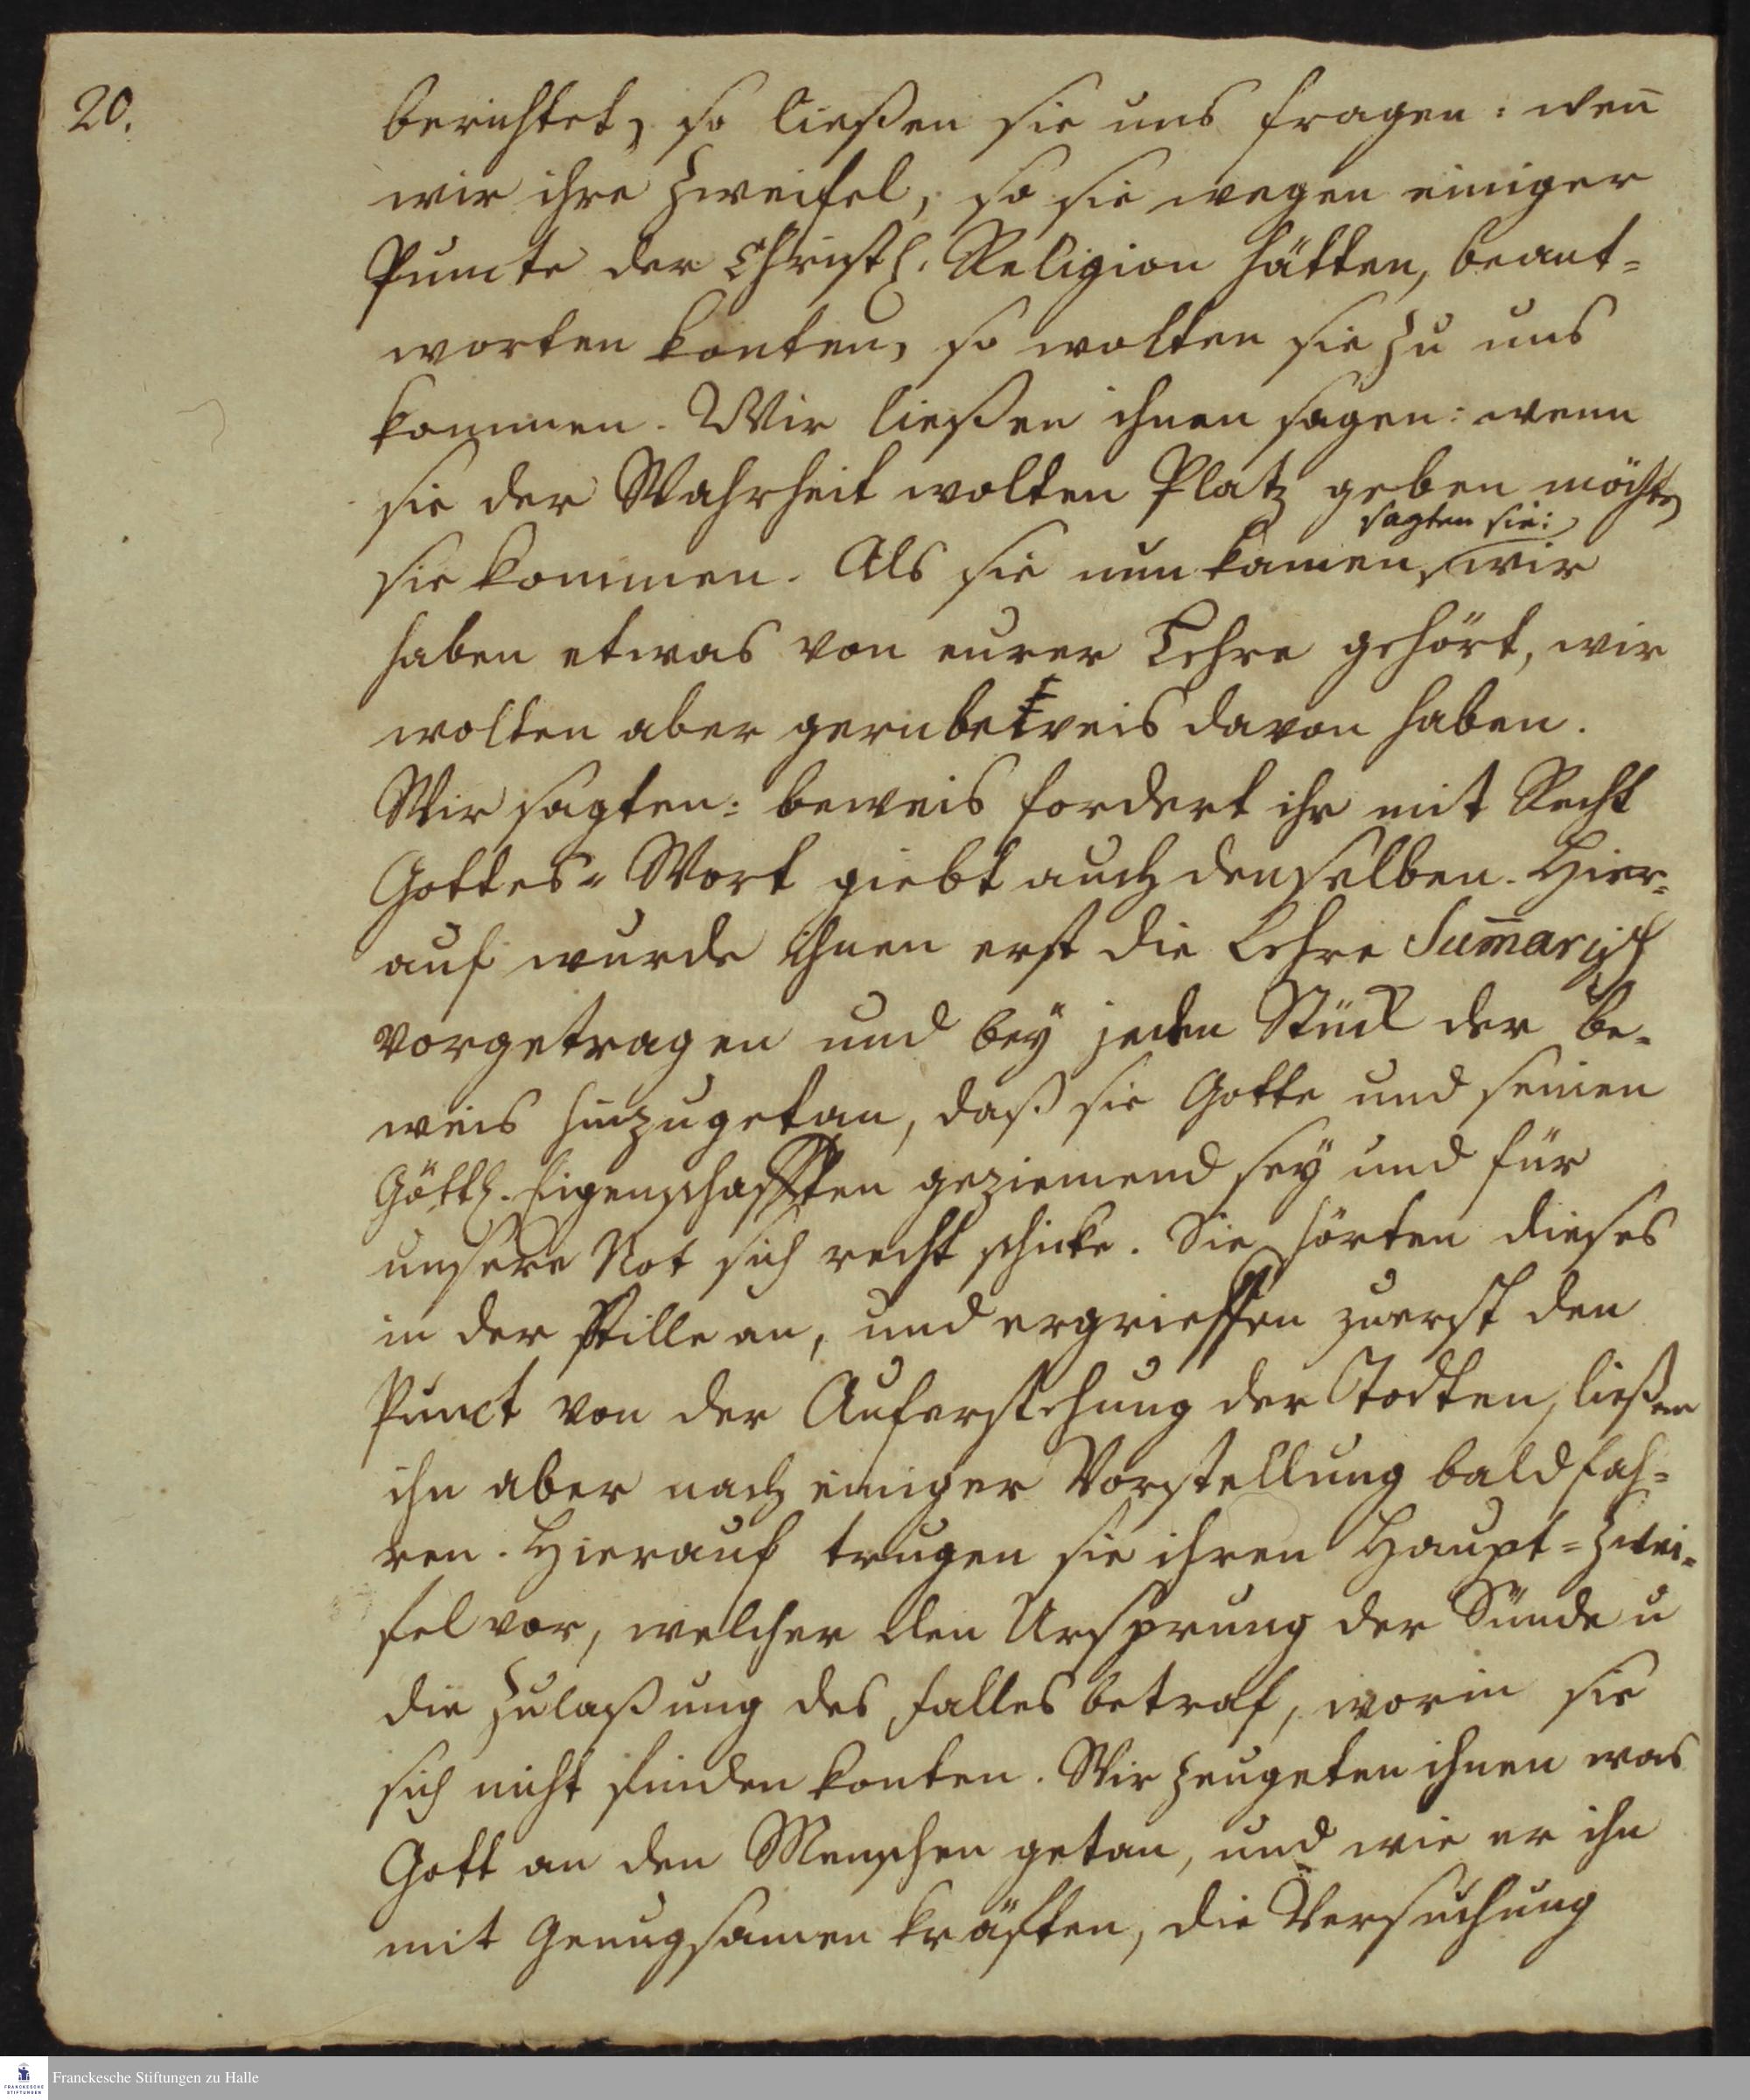 20.
berichtet, so ließen sie uns fragen: wen̅
wir ihre Zweifel, so sie wegen einiger
Puncte der Christl. Religion hätten, beant=
worten konten, so wolten sie zu uns
kommen. Wir ließen ihnen sagen: wenn
sie der Wahrheit wolten Platz geben möchten
sagten sie:
sie kommen. Als sie nun kamen, wir
haben etwas von eurer Lehre gehört, wir
wolten aber gern beweis davon haben.
Wir sagten: beweis fordert ihr mit Recht
Gottes=Wort giebt auch denselben. Hier=
auf wurde ihnen erst die Lehre Sum̅arisch
vorgetragen und beÿ jeden Stück der be=
weis hinzugetan, daß sie Gotte und seinen
Göttl. Eigenschafften geziemend seÿ und für
unsere Not sich recht schicke. Sie hörten dieses
in der Stille an, und ergrieffen zuerst den
Punct von der Auferstehung der Todten, ließen
ihn aber nach einiger Vorstellung bald fah=
ren. Hierauf trugen sie ihren Haupt=Zwei=
fel vor, welcher den Ursprung der Sünde u
die Zulaßung des Falles betraf, worin sie
sich nicht finden konten. Wir zeugeten ihnen was
Gott an den Menschen getan, und wie er ihn
mit genugsamen kräften, die Versuchung
Franckesche Stiftungen zu Halle
FRANCKESCHE
STIFTUNGEN